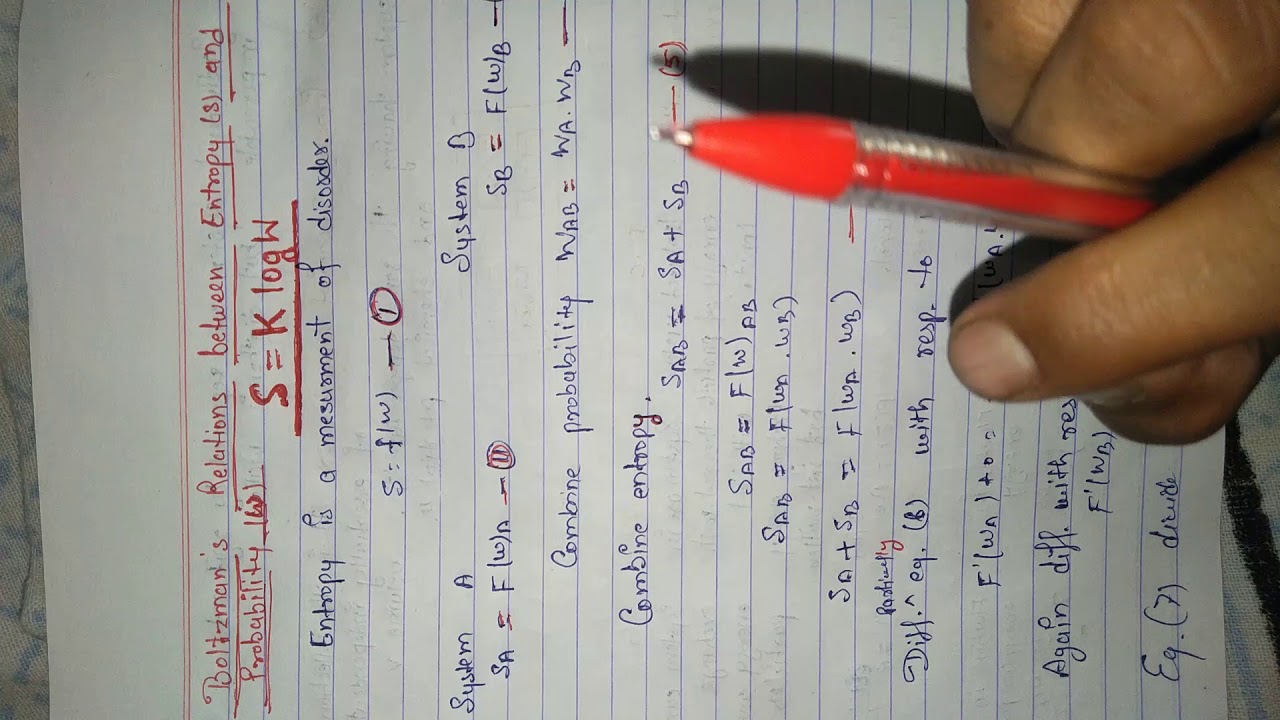 Boltzman's Relations between Entropy (S) and
Probability (W)
S = K log W
Entropy is a mesurment of disorder.
S = f(w) — (I)
System A System B
SA = F(w)A — (II) SB = F(w)B —
Combine probability WAB = WA. WB —
Combine entropy.
SAB = SA + SB — (5)
SAB = F(w)AB
SAB = F(wA . wB)
SA + SB = F(wA . wB) —
Partially
Diff. ^ eq. (6) with resp. to
F'(wA) + 0 = (wA.
Again diff. with res
F'(wB)
Eq. (7) divide